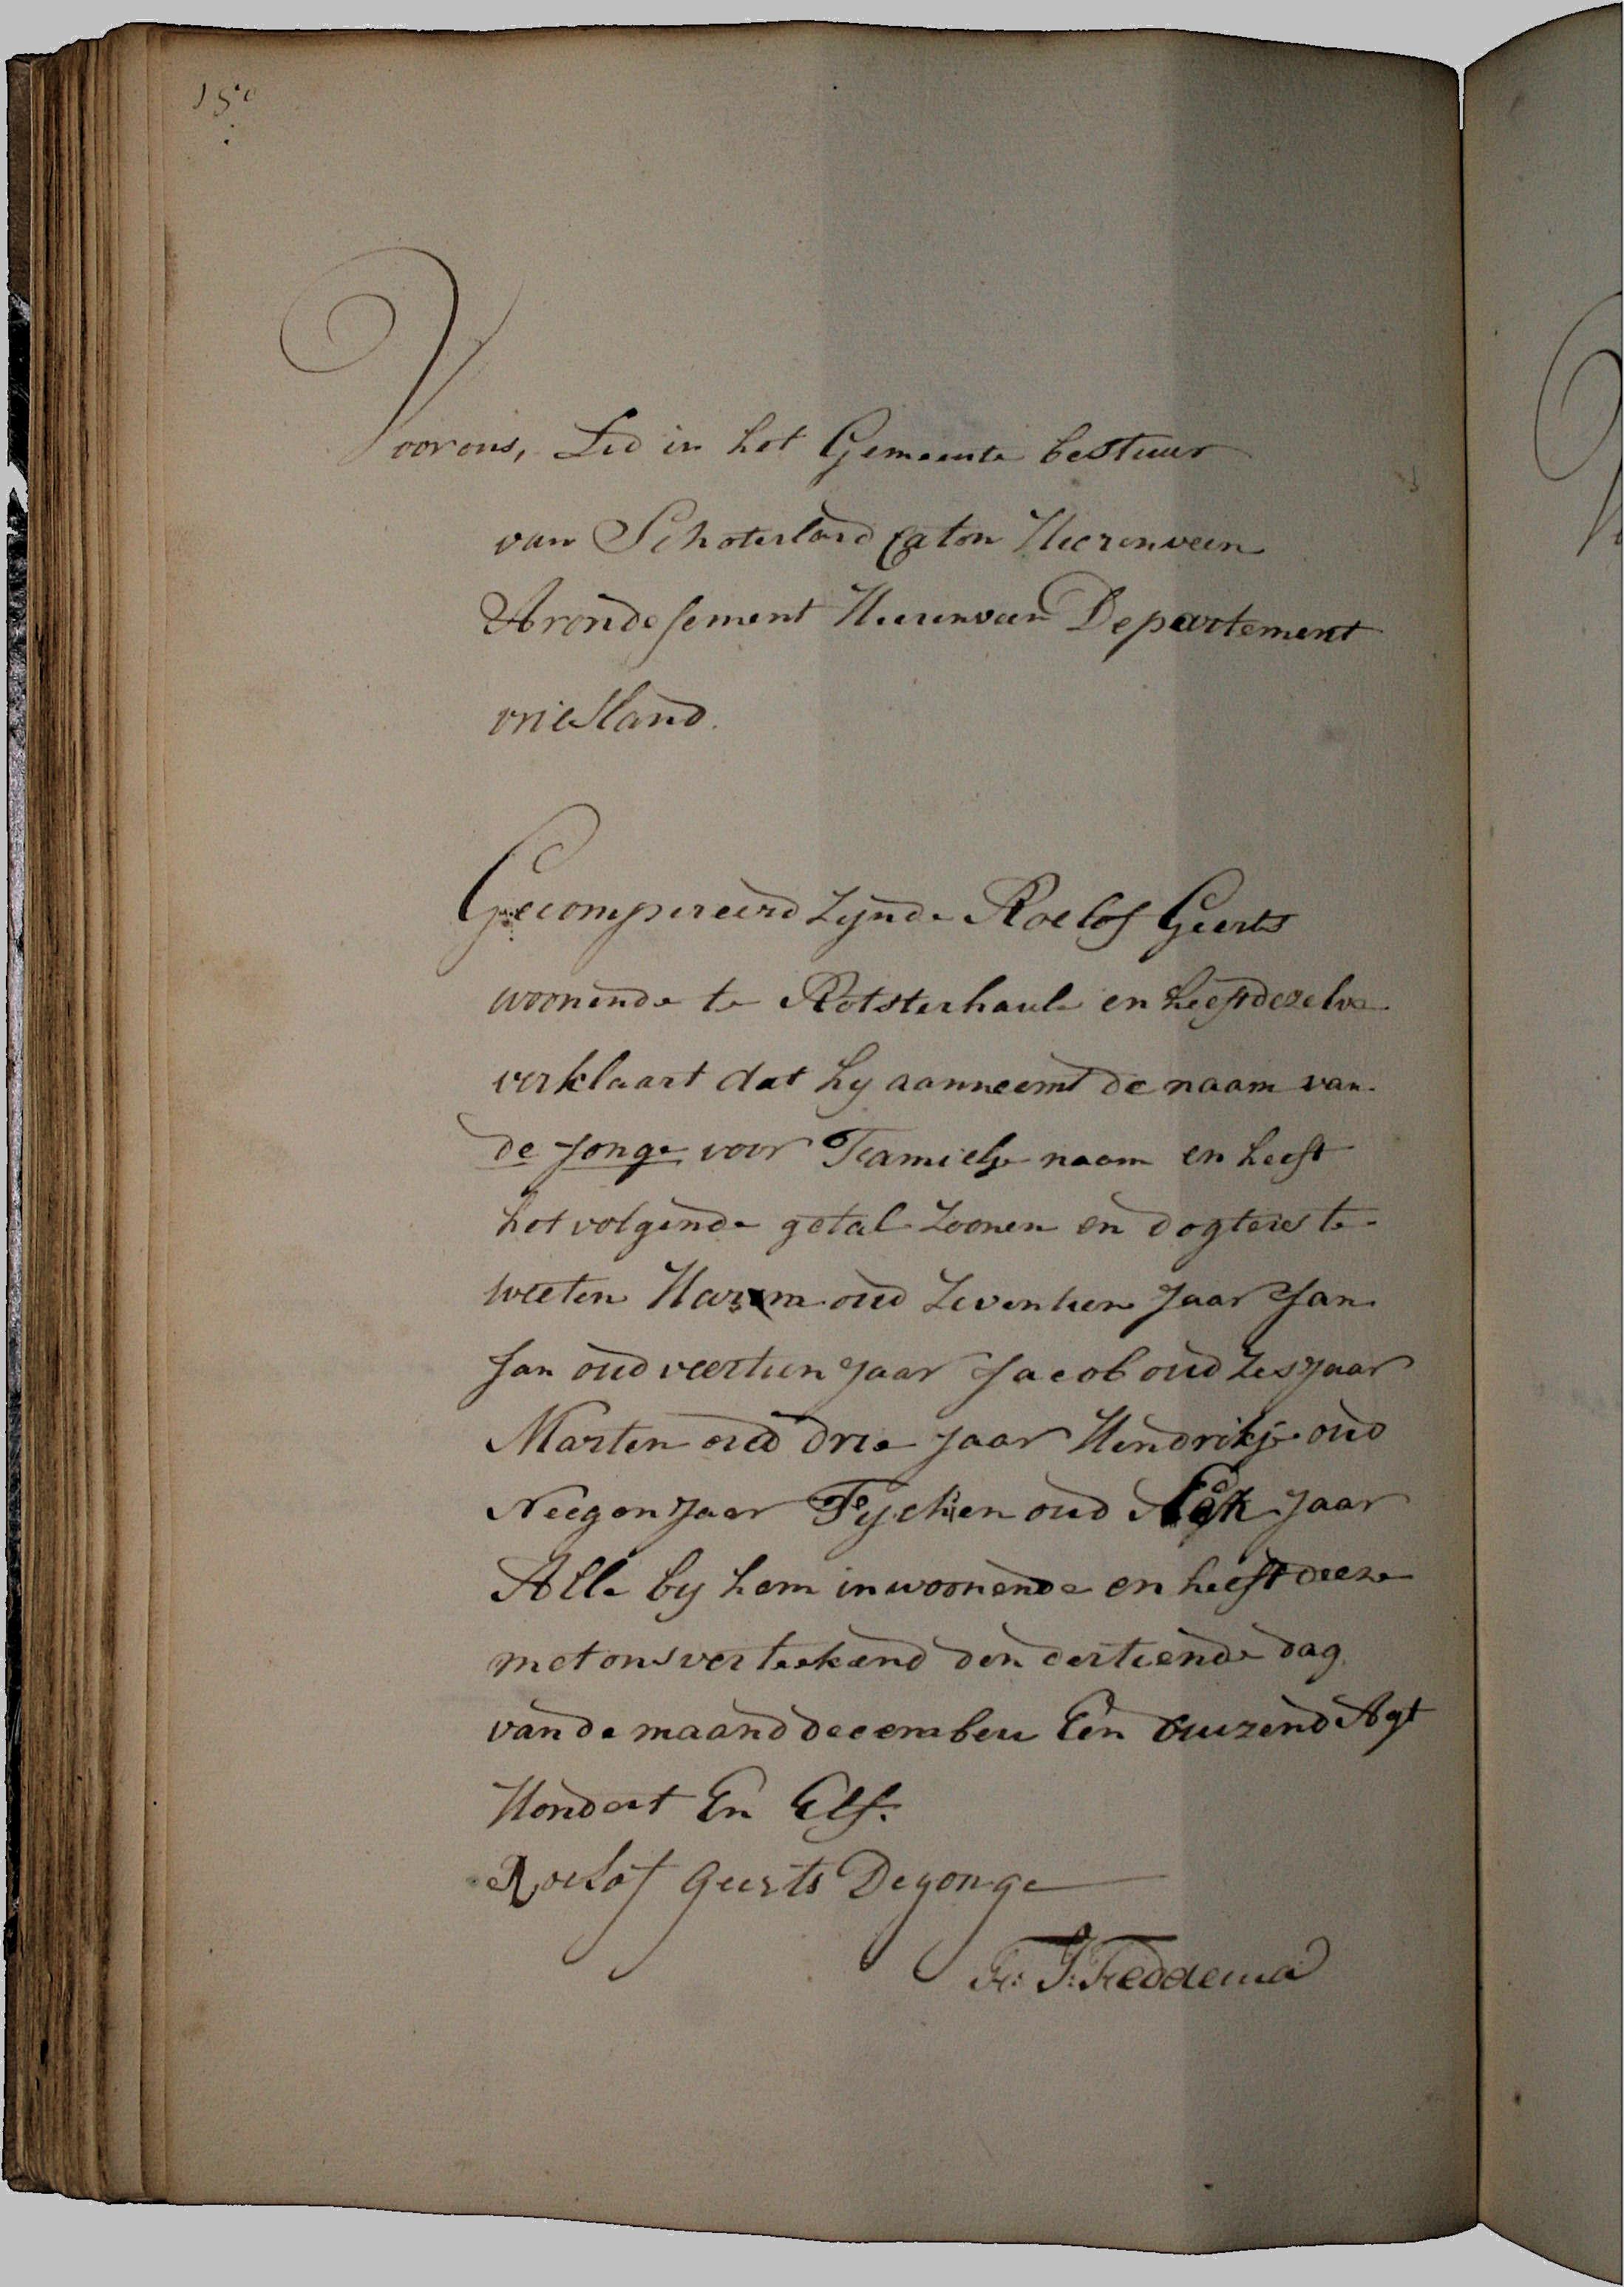 Voor ons, Lid in het Gemeente bestuur
van Schoterland Caton Heerenveen
Arondesement Heerenveen Departement
vriesland.
Gecompereerd Zynde Roelof Geerts
woonende te Rotsterhaule en heeft dezelve
verklaart dat hy aanneemt de naam van
de Jonge voor Famielje naam en heeft
het volgende getal Zoonen en dogters te
weeten Harm oud Zeventien Jaar Jan
Jan oud veertien Jaar Jacob oud Zes Jaar
Marten oud drie Jaar Hendrikje oud
Neegen Jaar oud Jaar
Alle by hem inwoonende en heeft deeze
met ons verteekend den dertiende dag
van de maand december Eén duizend Agt
Hondert En Elf.
Roelof geerts De yonge
Fr: J: Feddema